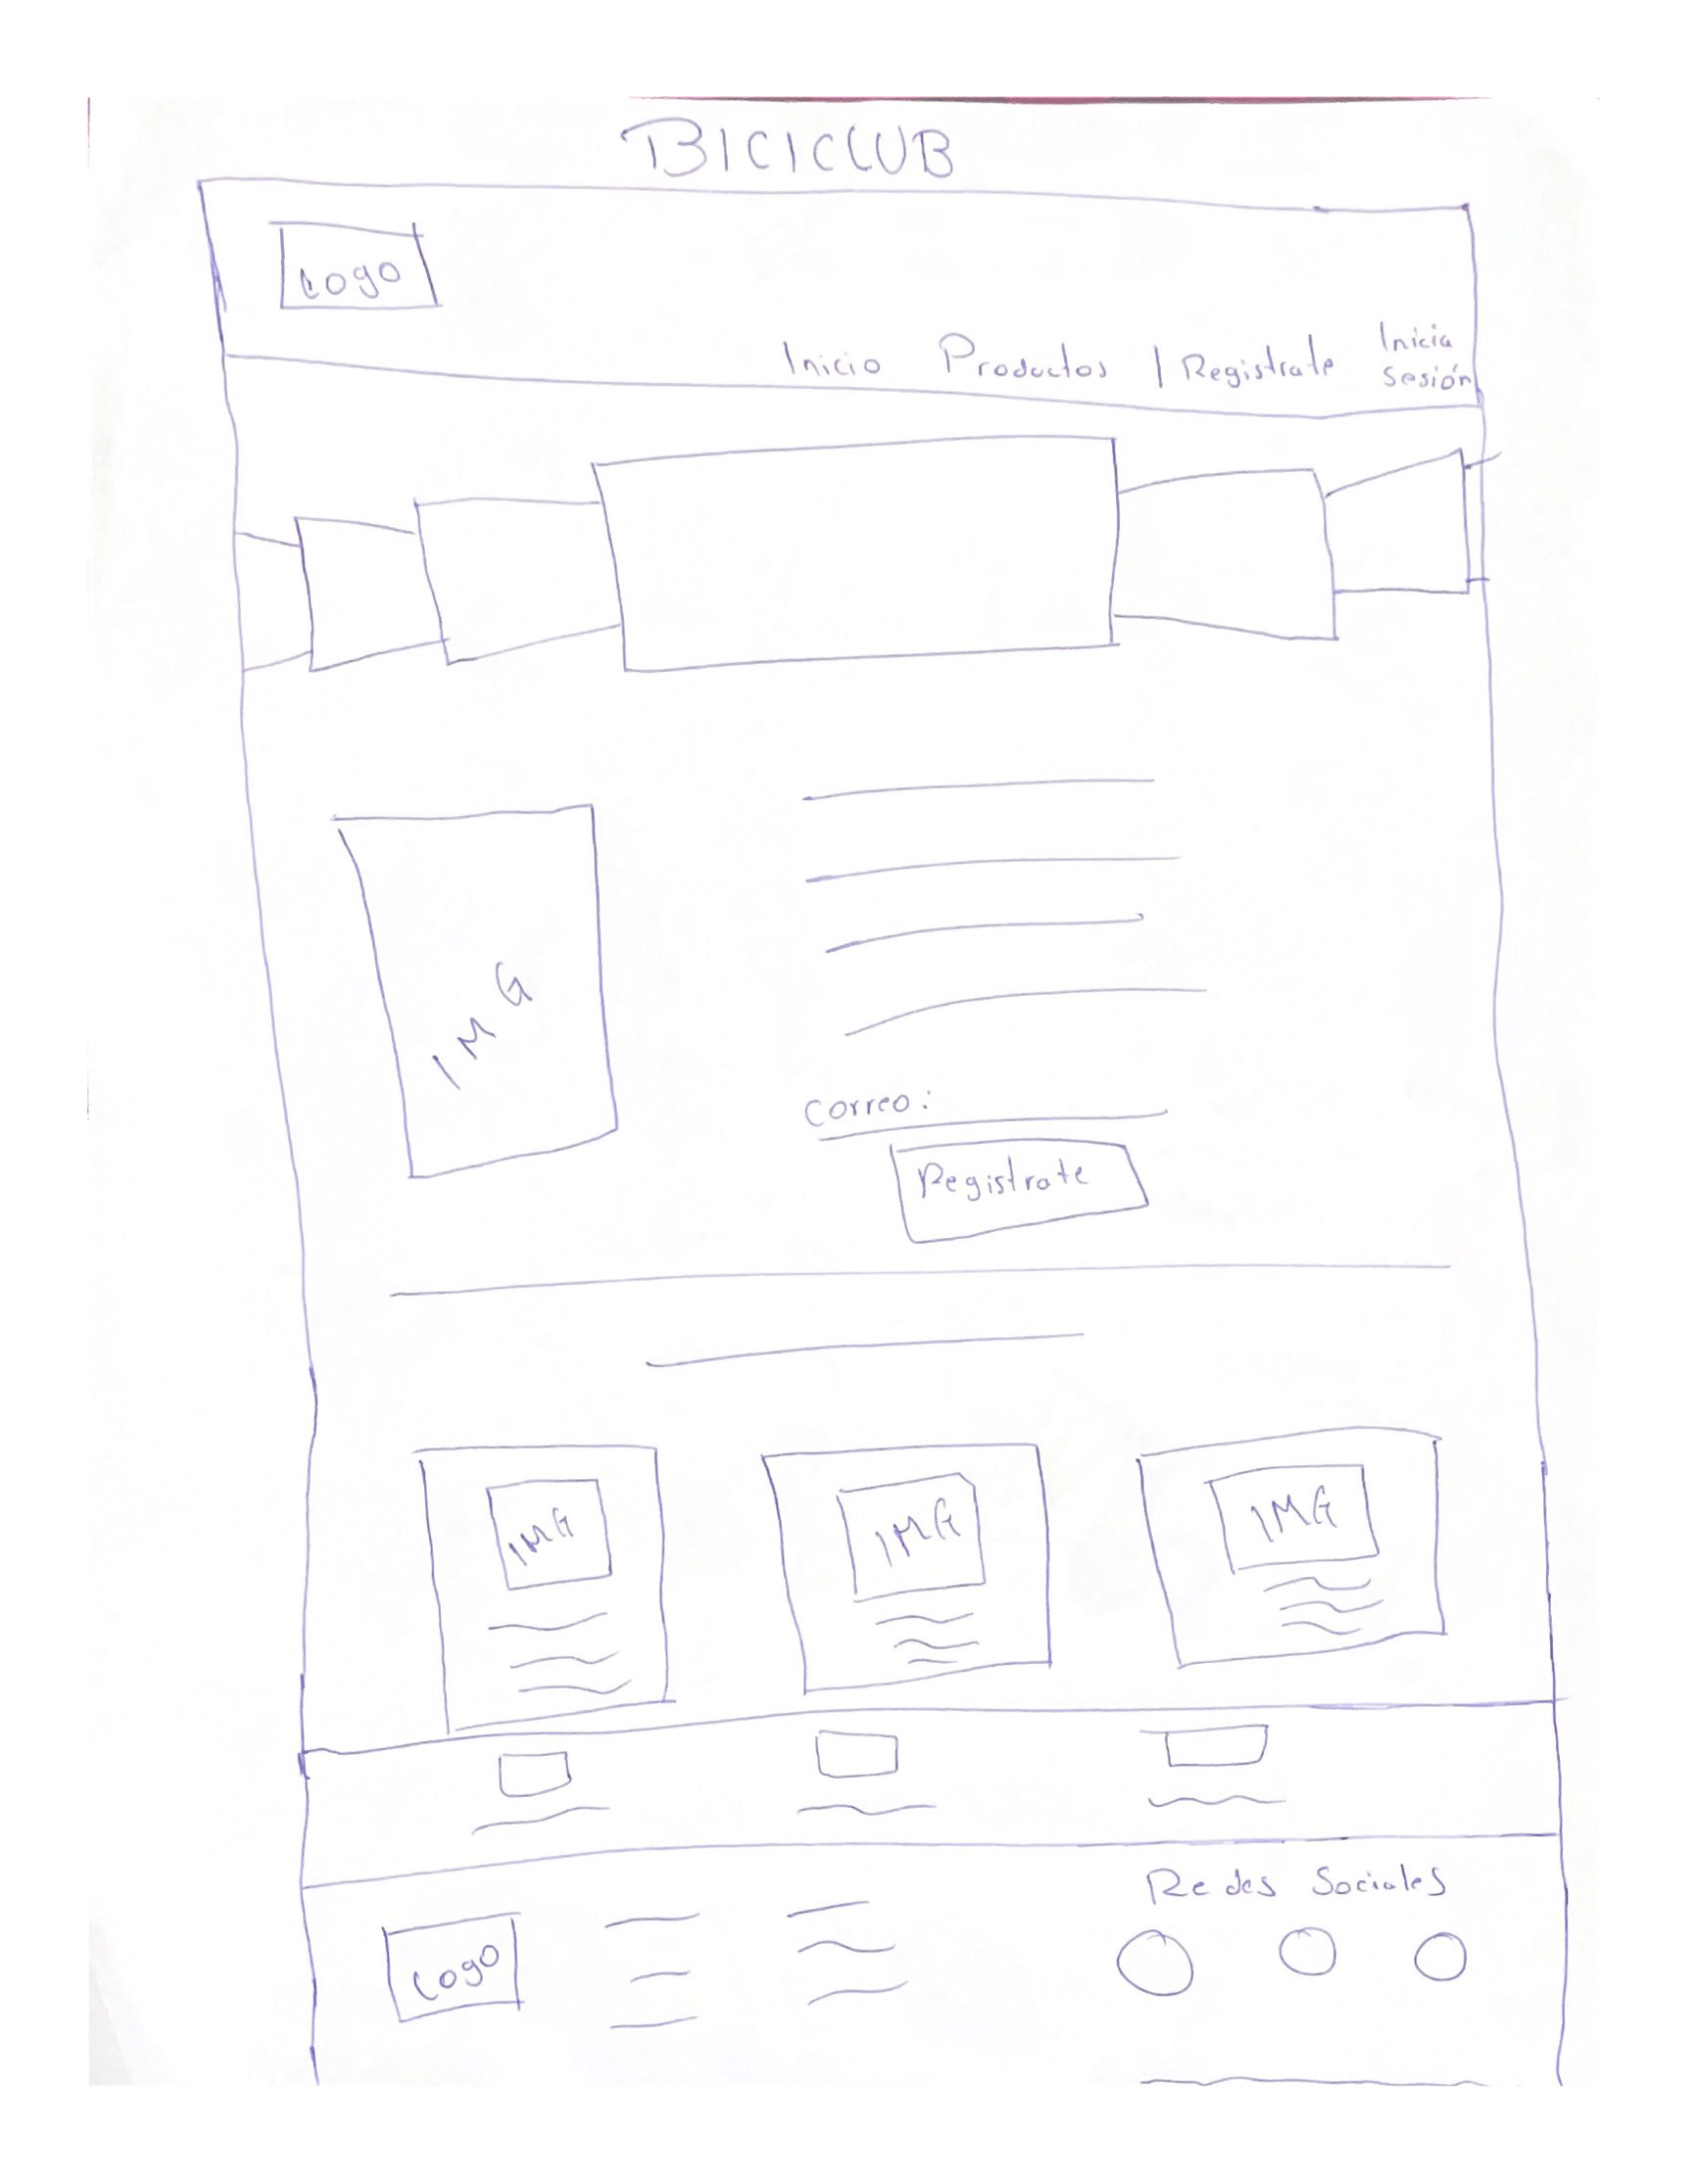 BICICLUB
Logo
Inicio Productos | Registrate Inicia sesión
IMG
Correo:
Registrate
IMG IMG IMG
Redes Sociales
Logo